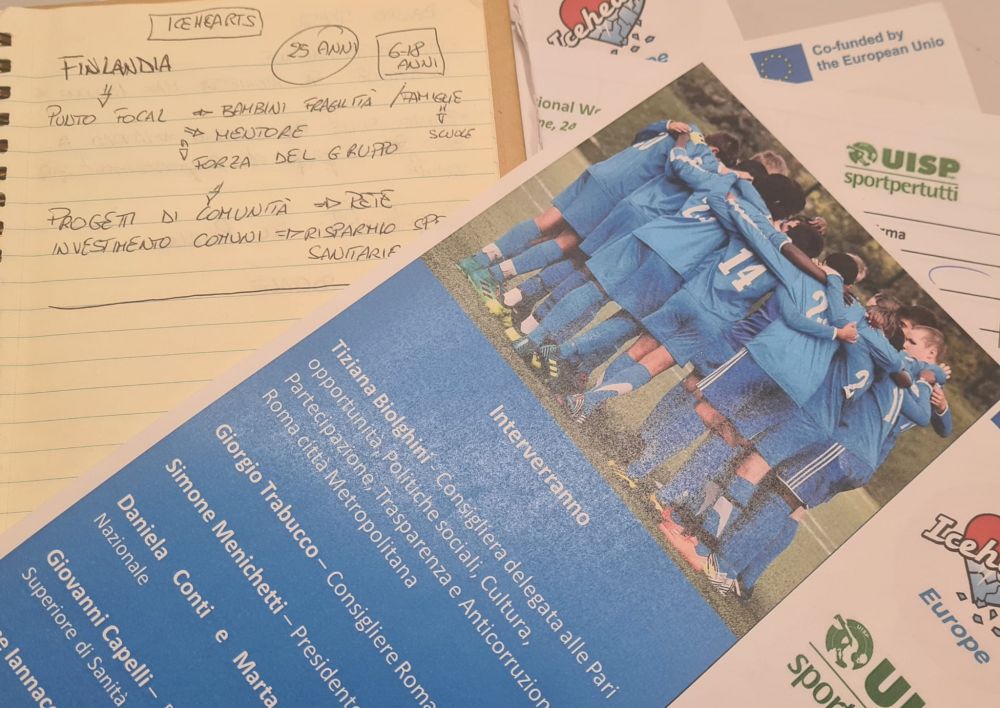 ICEHEARTS
FINLANDIA
25 ANNI
6-18
ANNI
PUNTO FOCAL ⇒ BAMBINI FRAGILITÀ / FAMIGLIE
⇒ MENTORE
SCUOLE
⇒ FORZA DEL GRUPPO
PROGETTI DI COMUNITÀ ⇒ RETE
INVESTIMENTO COMUNI ⇒ RISPARMIO SPE
SANITARIE
Icehea
pe
Co-funded by
the European Unio
ional Wo
ne, 2
UISP
sportpertutti
irma
14
2
2
Interverranno
Tiziana Biolghini - Consigliera delegata alle Pari
opportunità, Politiche sociali, Cultura,
Partecipazione, Trasparenza e Anticorruzion
Roma città Metropolitana
Giorgio Trabucco – Consigliere Roma
Simone Menichetti – Presidente
Daniela Conti e Marta
Nazionale
Giovanni Capelli –
Superiore di Sanità
e Iannac
Icehe
Europe
UI
sportper